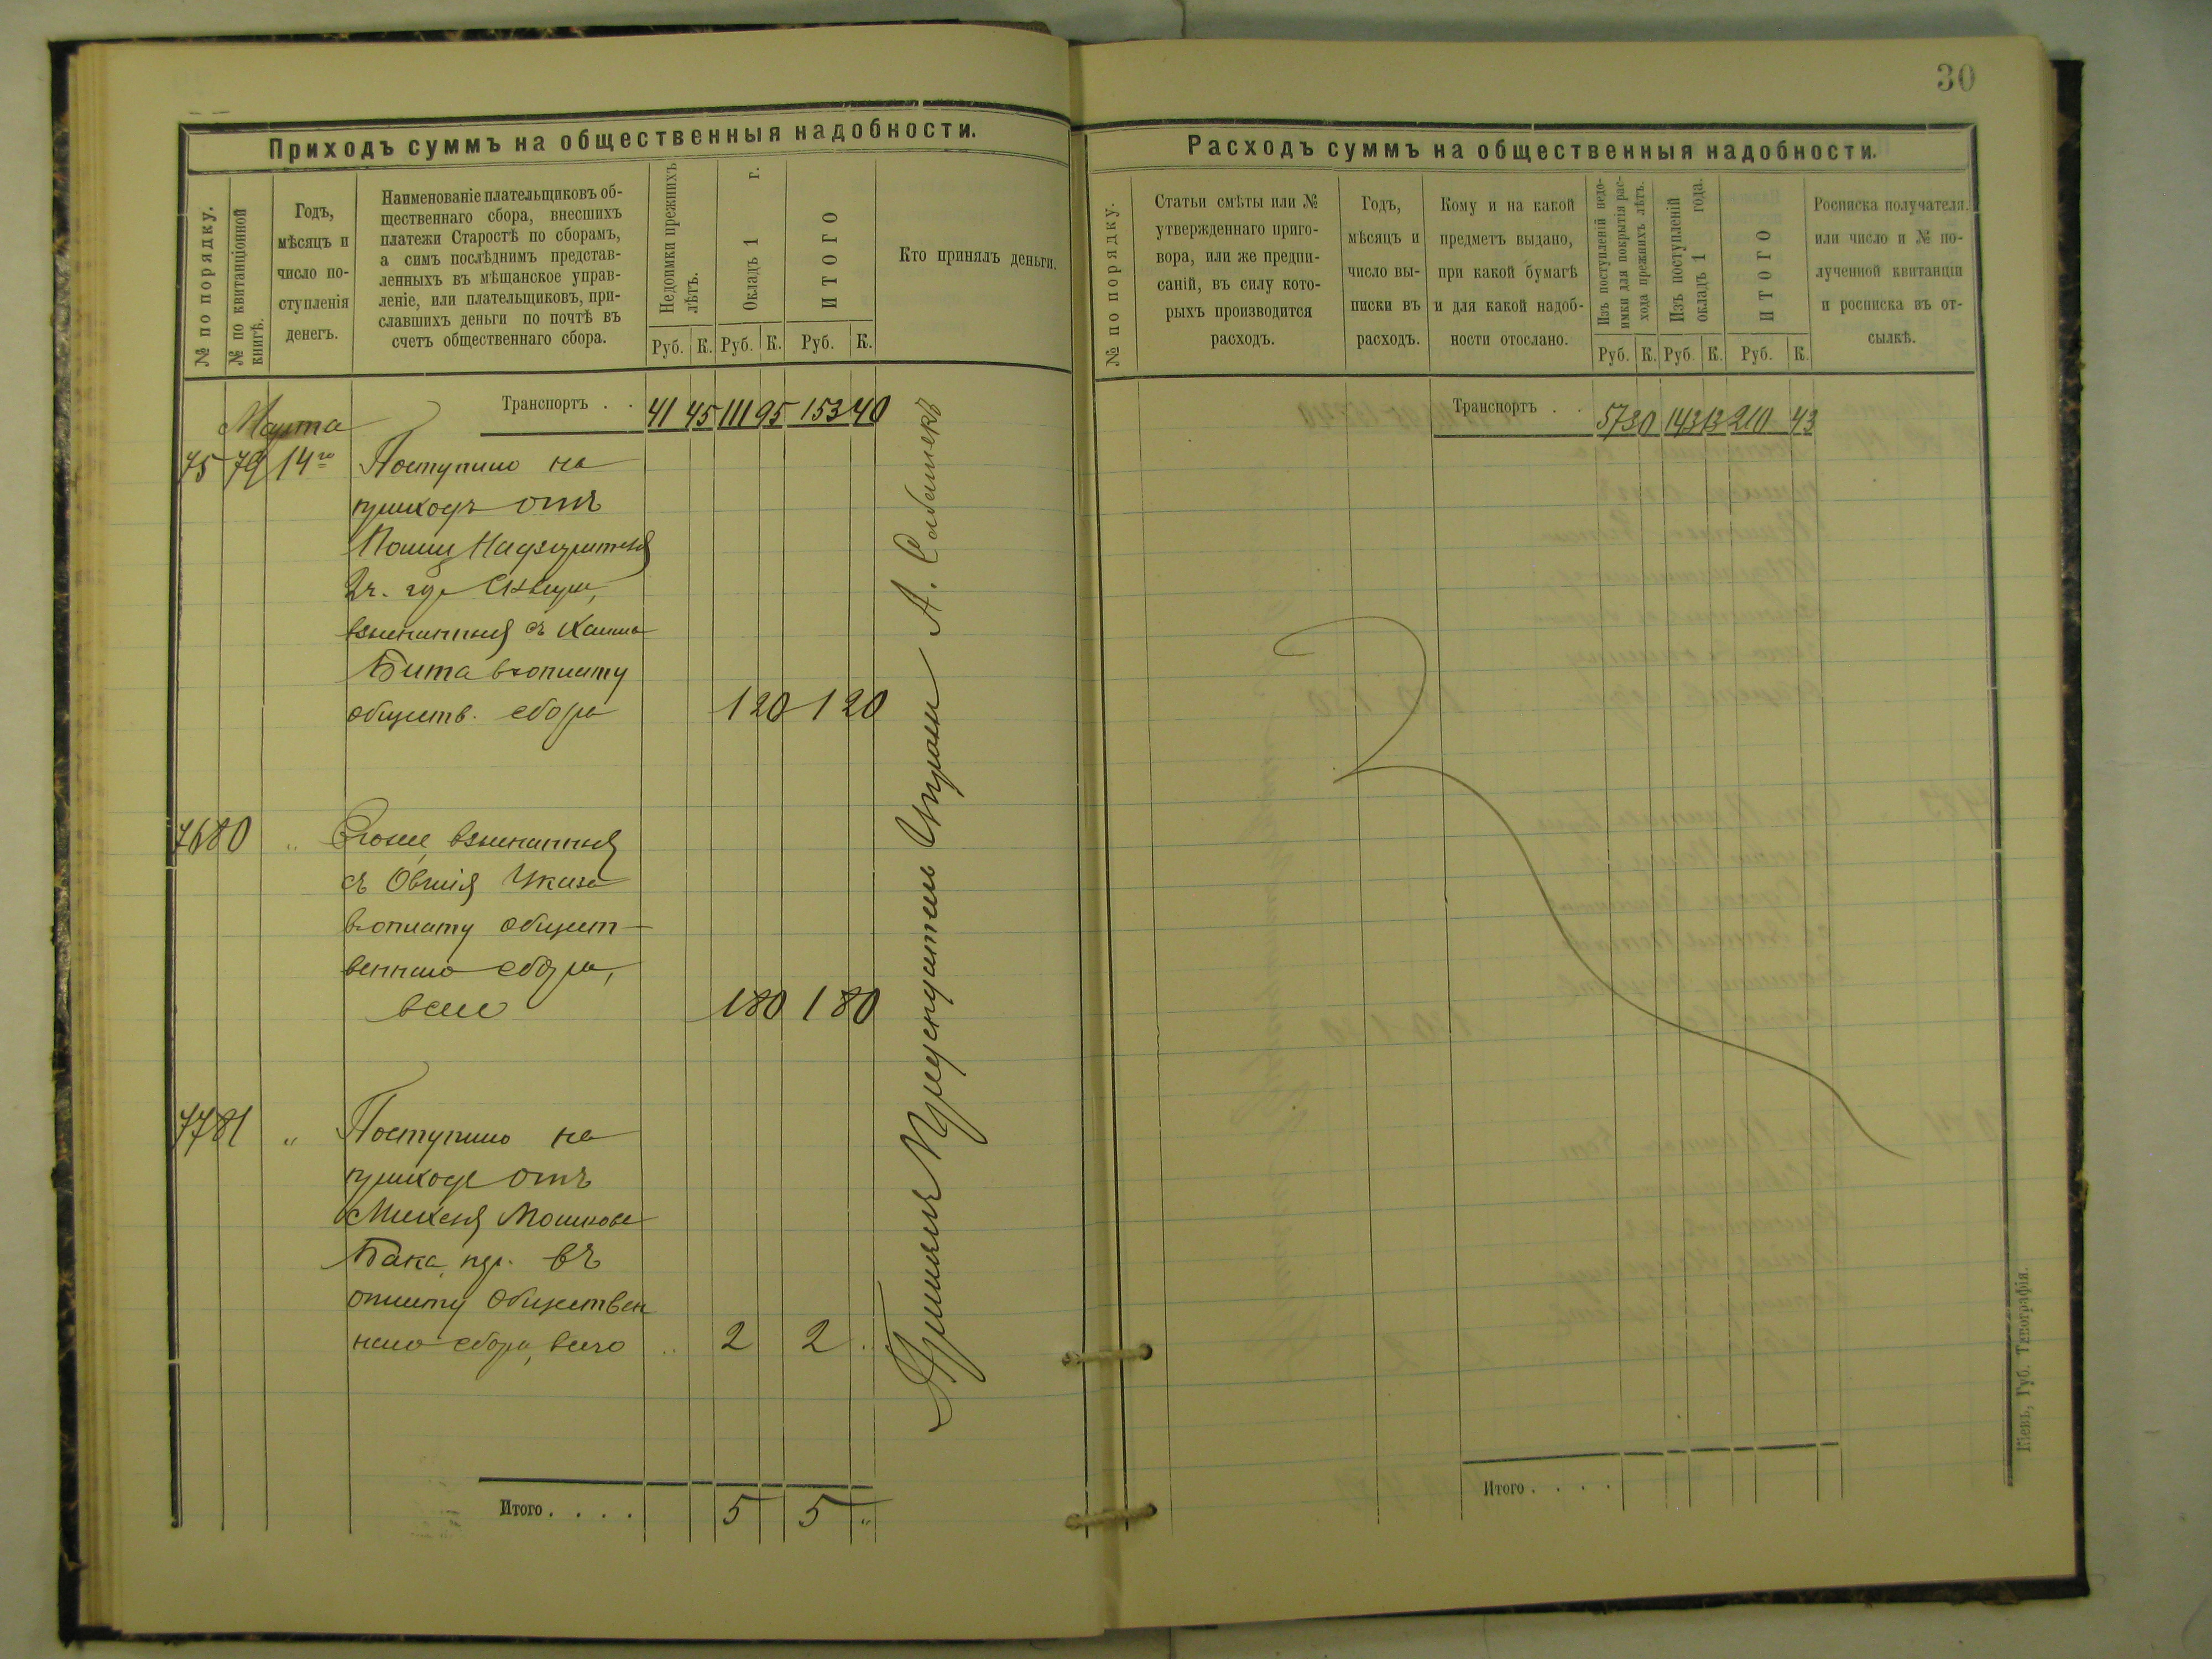 30
Приходъ суммъ на общественныя надобности.
№ по порядку.
№ по квитанціонной
книгѣ.
Годъ,
мѣсяцъ и
число по-
ступленія
денегъ.
Наименованіе плательщиковъ об-
щественнаго сбора, внесшихъ
платежи Старостѣ по сборамъ,
а симъ послѣднимъ представ-
ленныхъ въ мѣщанское управ-
леніе, или плательщиковъ, при-
славшихъ деньги по почтѣ въ
счетъ общественнаго сбора.
Недоимки прежнихъ
лѣтъ.
Окладъ 1 г.
ИТОГО
Руб. К. Руб. К. Руб. К.
Кто принялъ деньги.
Транспортъ . . 41 45 111 95 153 40
Марта
75 79 14го Поступило на
приходъ отъ
Полиц Надзирателя
2ч. гор
взысканныя съ
Бита въ оплату
обществ. сбора 1 20 1 20
76 80 " взысканныя
съ Овшія
въ оплату общест-
веннаго сбора,
всего 1 80 1 80
77 81 " Поступило на
приходъ отъ
Мошкова
Бака въ
оплату обществен
наго сбора, всего .. 2 2 .
Итого . . . . 5 5 "
Принялъ Предсѣдатель Управы А.
Расходъ суммъ на общественныя надобности.
№ по порядку.
Статьи смѣты или №
утвержденнаго приго-
вора, или же предпи-
саній, въ силу кото-
рыхъ производится
расходъ.
Годъ,
мѣсяцъ и
число вы-
писки въ
расходъ.
Кому и на какой
предметъ выдано,
при какой бумагѣ
и для какой надоб-
ности отослано.
Изъ поступленій недо-
имки для покрытія рас-
хода прежнихъ лѣтъ.
Изъ поступленій
окладъ 1 года.
ИТОГО
Руб. К. Руб. К. Руб. К.
Росписка получателя.
или число и № по-
лученной квитанціи
и росписка въ от-
сылкѣ.
Транспортъ . . 57 30 143 13 210 43
Итого . . . .
Кіевъ, Губ. Типографія.